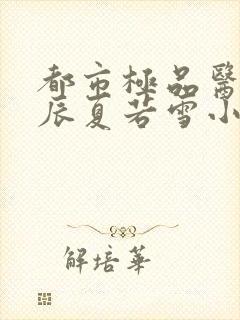 都市極品醫
辰夏若雪小
解培華